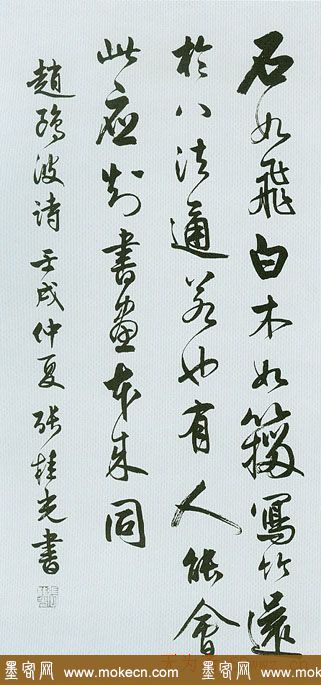 石如飛白木如籀寫竹還
於八法通若也有人能會
此應知書畫本来同
趙鷗波詩 壬戌仲夏 張桂光書
墨客网 www.mokecn.com 墨客网 www.mokecn.com